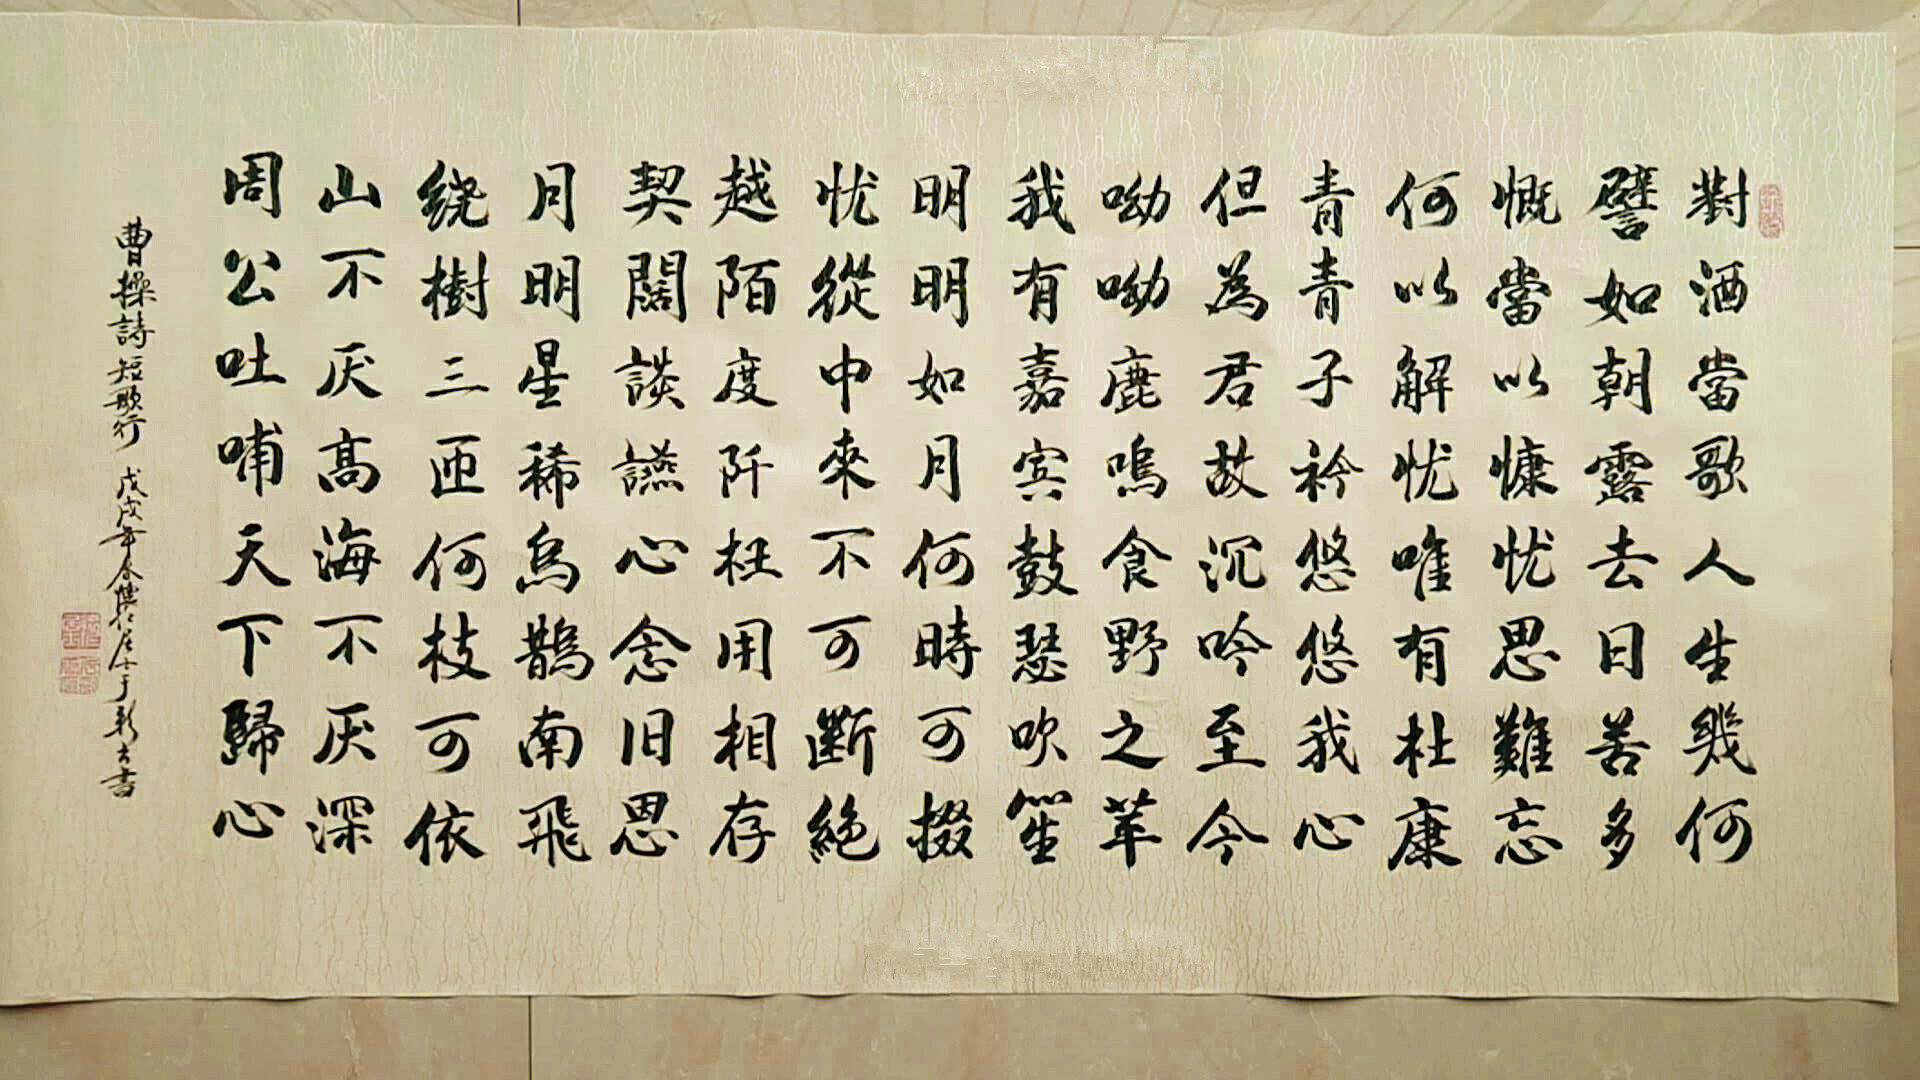 對酒當歌人生幾何
譬如朝露去日苦多
慨當以慷忧思難忘
何以解忧唯有杜康
青青子衿悠悠我心
但為君故沉吟至今
呦呦鹿鳴食野之苹
我有嘉宾鼓瑟吹笙
明明如月何時可掇
忧從中來不可断絕
越陌度阡枉用相存
契闊談讌心念旧恩
月明星稀烏鹊南飛
绕樹三匝何枝可依
山不厌高海不厌深
周公吐哺天下歸心
曹操詩短歌行 戊戌年春 于 書